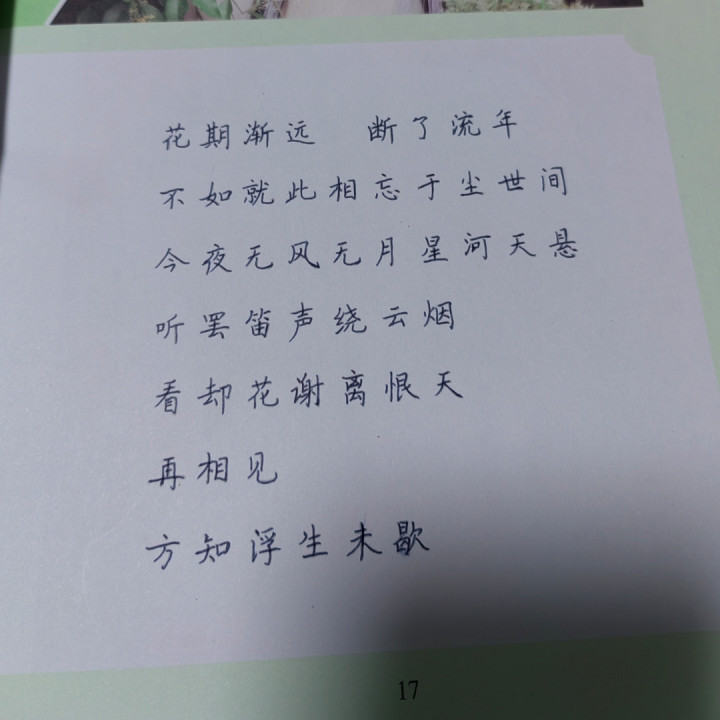 花期渐远 断了流年
不如就此相忘于尘世间
今夜无风无月星河天悬
听罢笛声绕云烟
看却花谢离恨天
再相见
方知浮生未歇
17